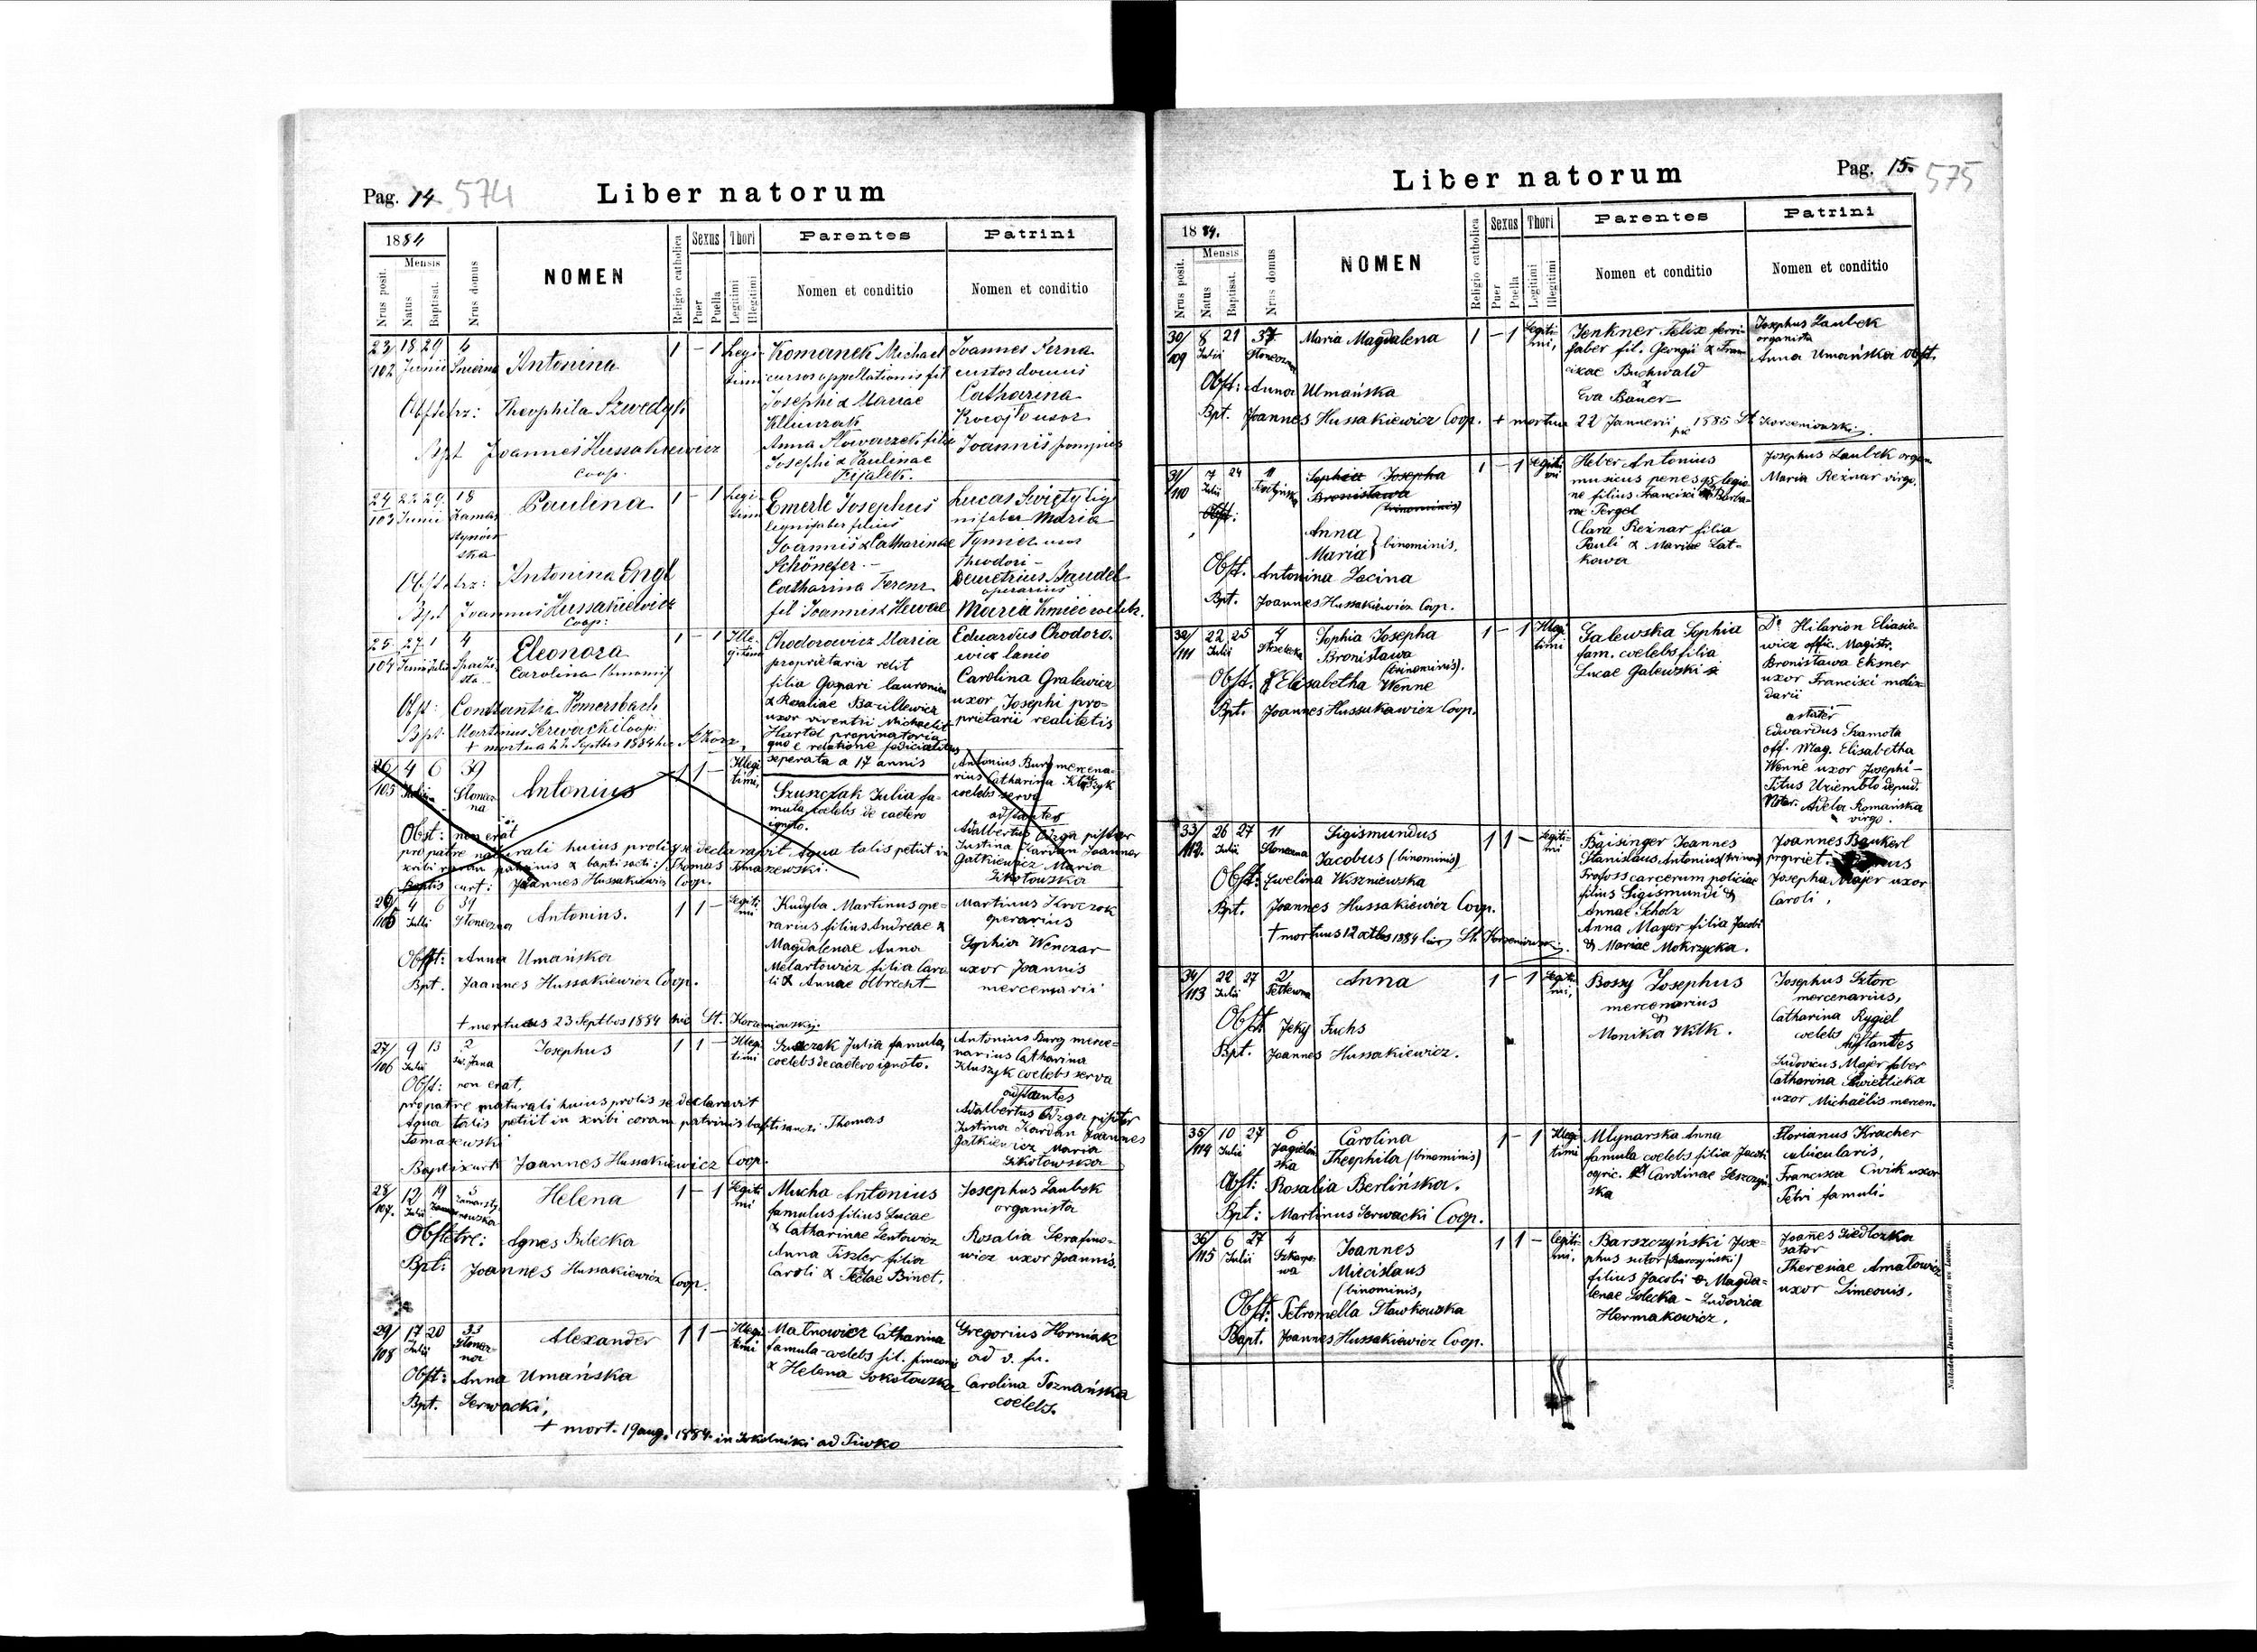 Pag. 14. 574
Liber natorum
1884
Mensis
Nrus posit.
Natus
Baptisat.
Nrus domus
NOMEN
Religio catholica
Sexus
Puer
Puella
Thori
Legitimi
Illegitimi
Parentes
Nomen et conditio
Patrini
Nomen et conditio
23/102 18 Junii 29 4
Antonina
1 - 1 Legitimi
Komanek Michael
cursor appellationis fil
Josephi & Mariae
Anna Slowaczek filia
Josephi & Paulinae
Fijalek.
Joannes Perna
custos domus
Catharina
uxor
Joannis
Obstetrz: Theophila Szwedyk
Bpt Joannes Hussakiewicz
Coop.
24/103 Junii 29 18
Zamarstynowska
Paulina
1 - 1 Legitimi
Emerle Josephus
lignifaber filius
Joannis & Catharinae
Schönefer -
Catharina Ferenz
fil Joannis &
Lucas Święty lignifaber
Maria
uxor
Theodori -
Demetrius Baudel
operarius
Maria Kmieć coeleb.
Obstetrz: Antonina Engl
Bpt Joannes Hussakiewicz
Coop:
25/104 27 Junii 1 Julii 4
Eleonora
Carolina (binominis)
1 - 1 Illegitimi
Chodorowicz Maria
proprietaria relit
filia Gaspari
& Rosaliae
uxor viventis Michaelis
Hartel propinatoria
quo e relatione
seperata a 17 annis
Eduardus Chodorowicz
lanio
Carolina Gralewicz
uxor Josephi proprietarii
realitatis
Obst: Constantia Pomersbach
Bpt: Martinus Serwacki Coop:
+ mortua 22 Septbis 1884
26/105 4 Julii 6 39
Słoneczna
Antonius
1 1 - Illegitimi,
Szuszczak Julia famula
coelebs de caetero
ignoto.
Antonius Burg mercenarius
Catharina
coelebs serva
adstantes
Adalbertus Ozga pistor
Justina Kardan Joannes
Gatkiewicz Maria
Sikotowska
Obst: non erat
pro patre naturali huius prolis se declaravit Aqua talis petiit in
scribi coram patrinis & baptisacti: Thomas Tomaszewski.
Joannes Hussakiewicz Coop.
26/105 4 Julii 6 39
Słoneczna
Antonius.
1 1 - Legitimi
Kudyba Martinus operarius
filius Andreae &
Magdalenae Anna
Melartowicz filia Caroli
& Annae Olbrecht -
Martinus Kroczok
operarius
Sophia Wenczar
uxor Joannis
mercenarii
Obst: Anna Umańska
Bpt. Joannes Hussakiewicz Coop.
+ mortuus 23 Septbos 1884 St. Korzeniowski.
27/106 9 Julii 13 2
św. Jana
Josephus
1 1 - Illegitimi
Julia famula,
coelebs de caetero ignoto.
Antonius Burg mercenarius
Catharina
Kluszyk coelebs serva
adstantes
Adalbertus Ozga pistor
Justina Kardan Joannes
Gatkiewicz Maria
Sikotowska
Obst: non erat,
pro patre naturali huius prolis se declaravit
Aqua talis petiit in scribi coram patrinis baptisandi Thomas
Tomaszewski
Joannes Hussakiewicz Coop.
28/107. 12 Julii 19 5
Helena
1 - 1 Legitimi
Mucha Antonius
famulus filius Lucae
& Catharinae Gentowicz
Anna Fiszler filia
Caroli & Teclae Binet.
Josephus Laubek
organista
Rosalia Serafinowicz
uxor Joannis.
Obstetre: Agnes Bilecka
Bpt: Joannes Hussakiewicz Coop.
29/108 17 Julii 20 33
Słoneczna
Alexander
1 1 - Illegitimi
Matnowicz Catharina
famula-coelebs fil. Simeonis
& Helena Sokołowska
Gregorius Horniak
ad v. fu.
Carolina Poznańska
coelebs.
Obst: Anna Umańska
Bpt. Serwacki,
+ mort. 19 aug. 1884 in Sokolniki ad Firwko
Liber natorum
Pag. 15. 575
1884.
Mensis
Nrus posit.
Natus
Baptisat.
Nrus domus
NOMEN
Religio catholica
Sexus
Puer
Puella
Thori
Legitimi
Illegitimi
Parentes
Nomen et conditio
Patrini
Nomen et conditio
30/109 8 Julii 21 37
Słoneczna
Maria Magdalena
1 - 1 Legitimi,
Jenkner Felix ferrifaber
fil. Georgii & Franciscae
Buchwald
&
Eva Bauer -
Josephus Laubek
organista
Anna Umańska obst.
Obst: Anna Umańska
Bpt. Joannes Hussakiewicz Coop. + mortua 22 Januarii 1885 St Korzeniowski.
31/110 7 Julii 24 11
Sophia Josepha
Bronisława
(trinominis)
Obst:
Anna
Maria } binominis.
1 - 1 Legitimi
Heber Antonius
musicus penes 95 legione
filius Francisci & Barbarae
Pergel
Clara Reżnar filia
Pauli & Mariae Latkowa
Josephus Laubek organ.
Maria Reżnar virgo.
Obst. Antonina Jacina
Bpt. Joannes Hussakiewicz Coop.
32/111 22 Julii 25 4
Strzelecka
Sophia Josepha
Bronisława
(trinominis).
1 - 1 Illegitimi
Galewska Sophia
fam. coelebs filia
Lucae Galewski
Dr. Hilarion Eliasiewicz
offic. Magistr.
Bronisława Eksner
uxor Francisci molendarii
astater
Edwardus Szamota
off. Mag. Elisabetha
Wenne uxor Josephi -
Titus Uziembło depud.
Notar. Adela Romańska
virgo.
Obst. Elisabetha Wenne
Bpt. Joannes Hussakiewicz Coop.
33/112. 26 Julii 27 11
Słoneczna
Sigismundus
Jacobus (binominis)
1 1 - Legitimi
Baisinger Joannes
Stanislaus Antonius (trinom)
Profoss carcerum policiae
filius Sigismundi &
Annae Scholz
Anna Mayer filia Jacobi
& Mariae Mokrzycka.
Joannes Baukerl
propriet.
Josepha Majer uxor
Caroli.
Obst: Ewelina Wiszniewska
Bpt. Joannes Hussakiewicz Coop.
+ mortuus 12 octbs 1884 St. Korzeniowski.
34/113 22 Julii 27 21
Anna
1 - 1 Legitimi,
Bossy Josephus
mercenarius
&
Monika Wilk.
Josephus Sztorc
mercenarius,
Catharina Rygiel
coelebs
Adstantes
Ludovicus Majer faber
Catharina Świetlicka
uxor Michaëlis mercen.
Obst. Jeky Fuchs
Bpt. Joannes Hussakiewicz.
35/114 10 Julii 27 6
Jagielońska
Carolina
Theophila (binominis)
1 - 1 Illegitimi
Młynarska Anna
famula coelebs filia Jacobi
agric. & Carolinae
Florianus Kracher
cubicularis,
Francisca Ćwik uxor
Petri famuli.
Obst: Rosalia Berlińska.
Bpt: Martinus Serwacki Coop.
36/115 6 Julii 27 4
Szkarpowa
Joannes
Miecislaus
(binominis,
1 1 - Legitimi,
Barszczyński Josephus
sutor (Barczyński)
filius Jacobi & Magdalenae
Solecka - Ludovica
Hermakowicz.
Joannes Siedlozka
sator
Theresiae Amatowicz
uxor Simeonis.
Obst: Petronella Stawkowska
Bapt. Joannes Hussakiewicz Coop.